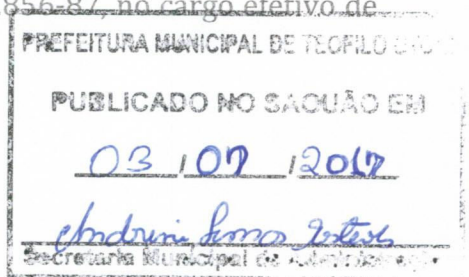 856-87, no cargo efetivo de
PREFEITURA MUNICIPAL DE TEOFILO
PUBLICADO NO SAGUÃO EM
03 / 07 / 2017
Secretaria Municipal de